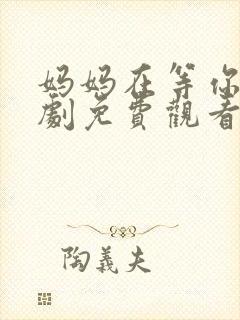 妈妈在等你
劇免費觀看
陶義夫